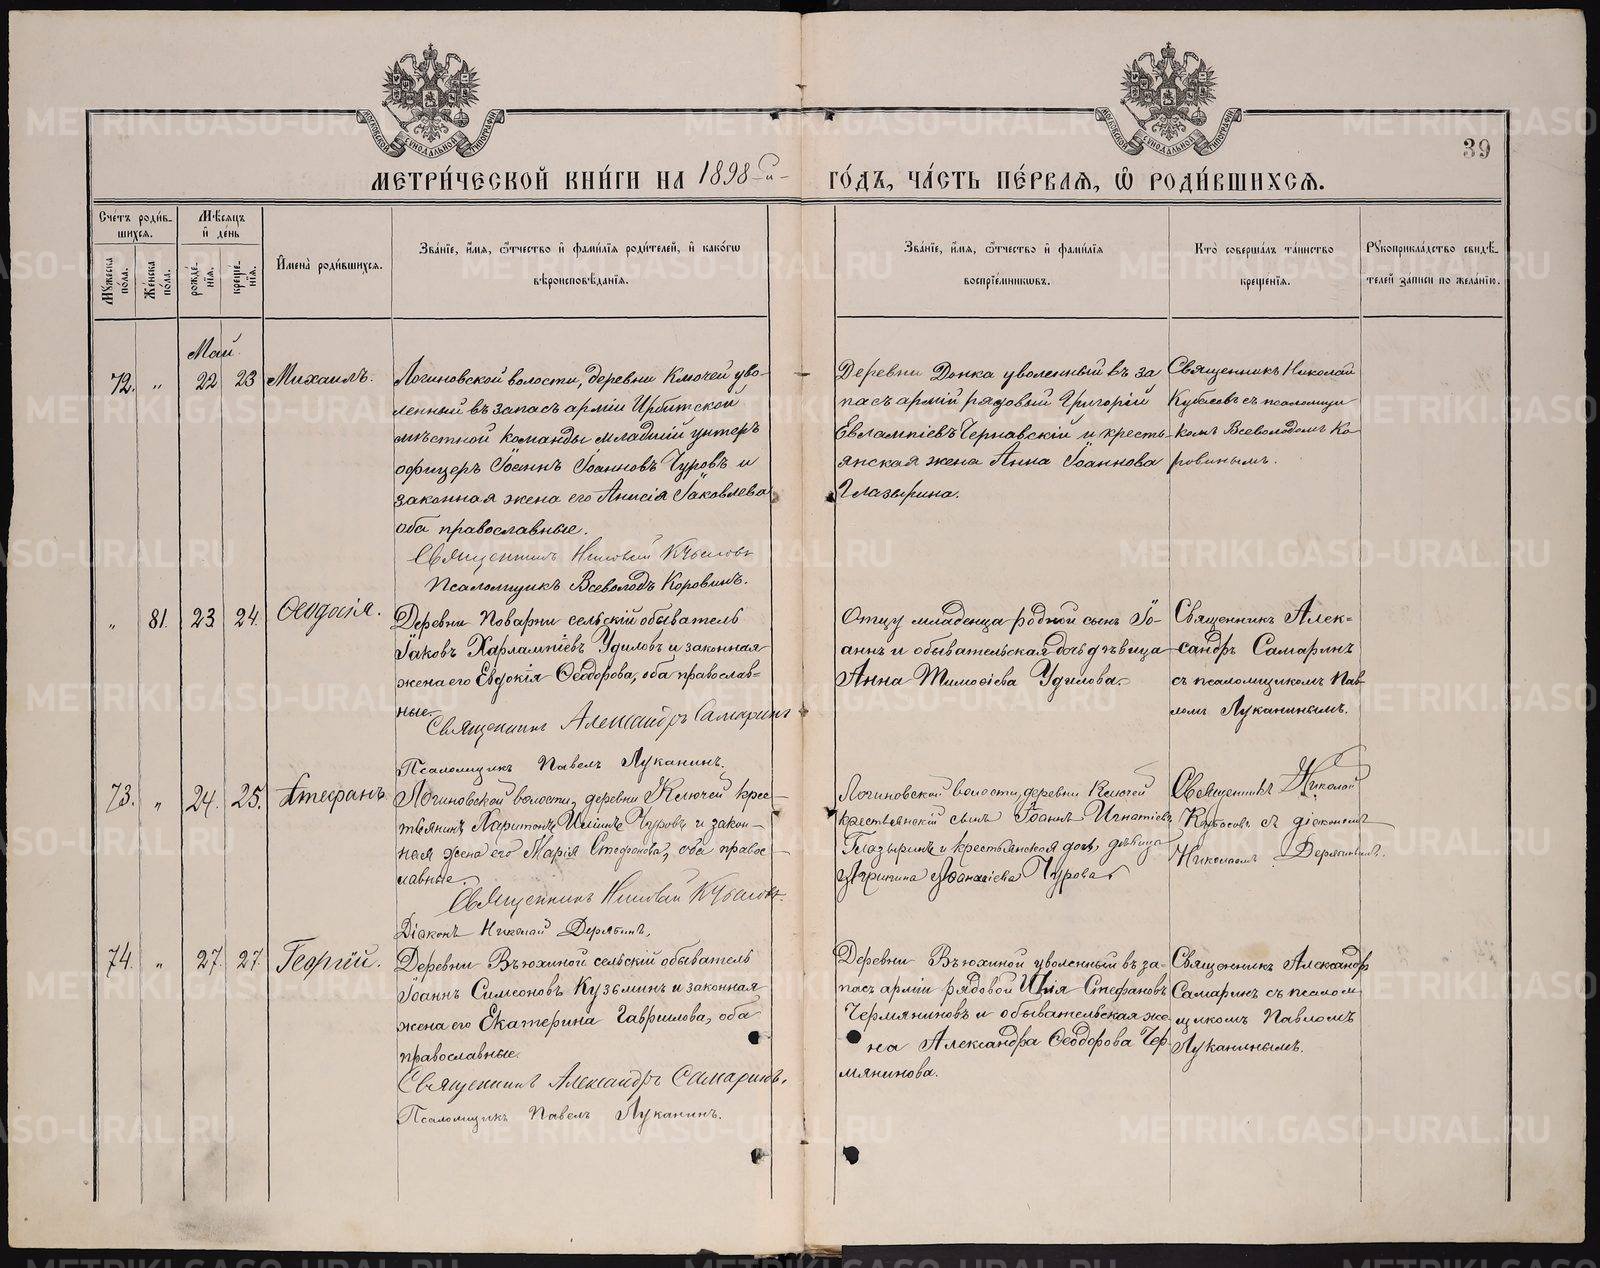 МЕТРИ́ЧЕСКОЙ КНИ́ГИ НА 1898й ГО́ДЪ, ЧА́СТЬ ПЕ́РВАЯ, Ѿ РОДИ́ВШИХСЯ.
39
Сче́тъ роди́в-
шихся.
Му́жеска по́ла.
Же́нска по́ла.
Мѣ́сяцъ
и҆ де́нь
рожде́нїя.
креще́нїя.
И҆мена̀ роди́вшихся.
Зва́нїе, и҆́мя, ѻ҆́тчество и҆ фами́лїя роди́телей, и҆ како́гѡ
вѣроисповѣ́данїя.
Зва́нїе, и҆́мя, ѻ҆́тчество и҆ фами́лїя
воспрїе́мникѡвъ.
Кто̀ соверша́лъ та́инство
креще́нїя.
Рꙋкоприкла́дство свидѣ́-
телей за́писи по жела́нїю.
Май.
72. „ 22 23 Михаилъ.
Логиновской волости, деревни Ключей уво-
ленный въ запасъ арміи Ирбитской
мѣстной команды младшій унтеръ
офицеръ Іоаннъ Іоанновъ Чуровъ и
законная жена его Анисія Іаковлева
оба православные.
Священникъ Николай Кубасовъ
Псаломщикъ Всеволодъ Коровинъ.
Деревни Донка уволенный въ за
пасъ арміи рядовый Григорій
Евлампіевъ Чернавскій и кресть-
янская жена Анна Іоаннова
Глазырина.
Священникъ Николай
Кубасовъ съ псаломщи
комъ Всеволодомъ Ко
ровинымъ.
„ 81. 23 24. Ѳеодосія.
Деревни Поварни сельскій обыватель
Іаковъ Харлампіевъ Удиловъ и законная
жена его Евдокія Ѳеодорова, оба православ=
ные.
Священникъ Александръ Самаринъ
Псаломщикъ Павелъ Луканинъ.
Отцу младенца родной сынъ Іо-
аннъ и обывательская дочь дѣвица
Анна Тимоѳіева Удилова.
Священникъ Алек=
сандръ Самаринъ
съ псаломщикомъ Пав
ломъ Луканинымъ.
73. „ 24. 25. Стефанъ
Логиновской волости, деревни Ключей крес-
тьянинъ Харитонъ Чуровъ и закон-
ная жена его Марія Стефанова, оба правос
лавные.
Священникъ Николай Кубасовъ.
Діаконъ Николай Дерябинъ.
Логиновской волости, деревни Ключей
крестьянскій сынъ Іоаннъ Игнатіевъ
Глазыринъ и крестьянская дочь, дѣвица
Аѳанасіева Чурова
Священникъ Николай
Кубасовъ съ діакономъ
Николаемъ Дерябинымъ.
74. „ 27. 27. Георгій.
Деревни Вьюхиной сельскій обыватель
Іоаннъ Симеоновъ Кузьминъ и законная
жена его Екатерина Гавриилова, оба
православные.
Священникъ Александръ Самаринъ.
Псаломщикъ Павелъ Луканинъ.
Деревни Вьюхиной уволенный въ за-
пасъ арміи рядовой Илія Стефановъ
Чермяниновъ и обывательская же-
на Александра Ѳеодорова Чер
мянинова.
Священникъ Александръ
Самаринъ съ псалом
щикомъ Павломъ
Луканинымъ.
METRIKI.GASO-URAL.RU